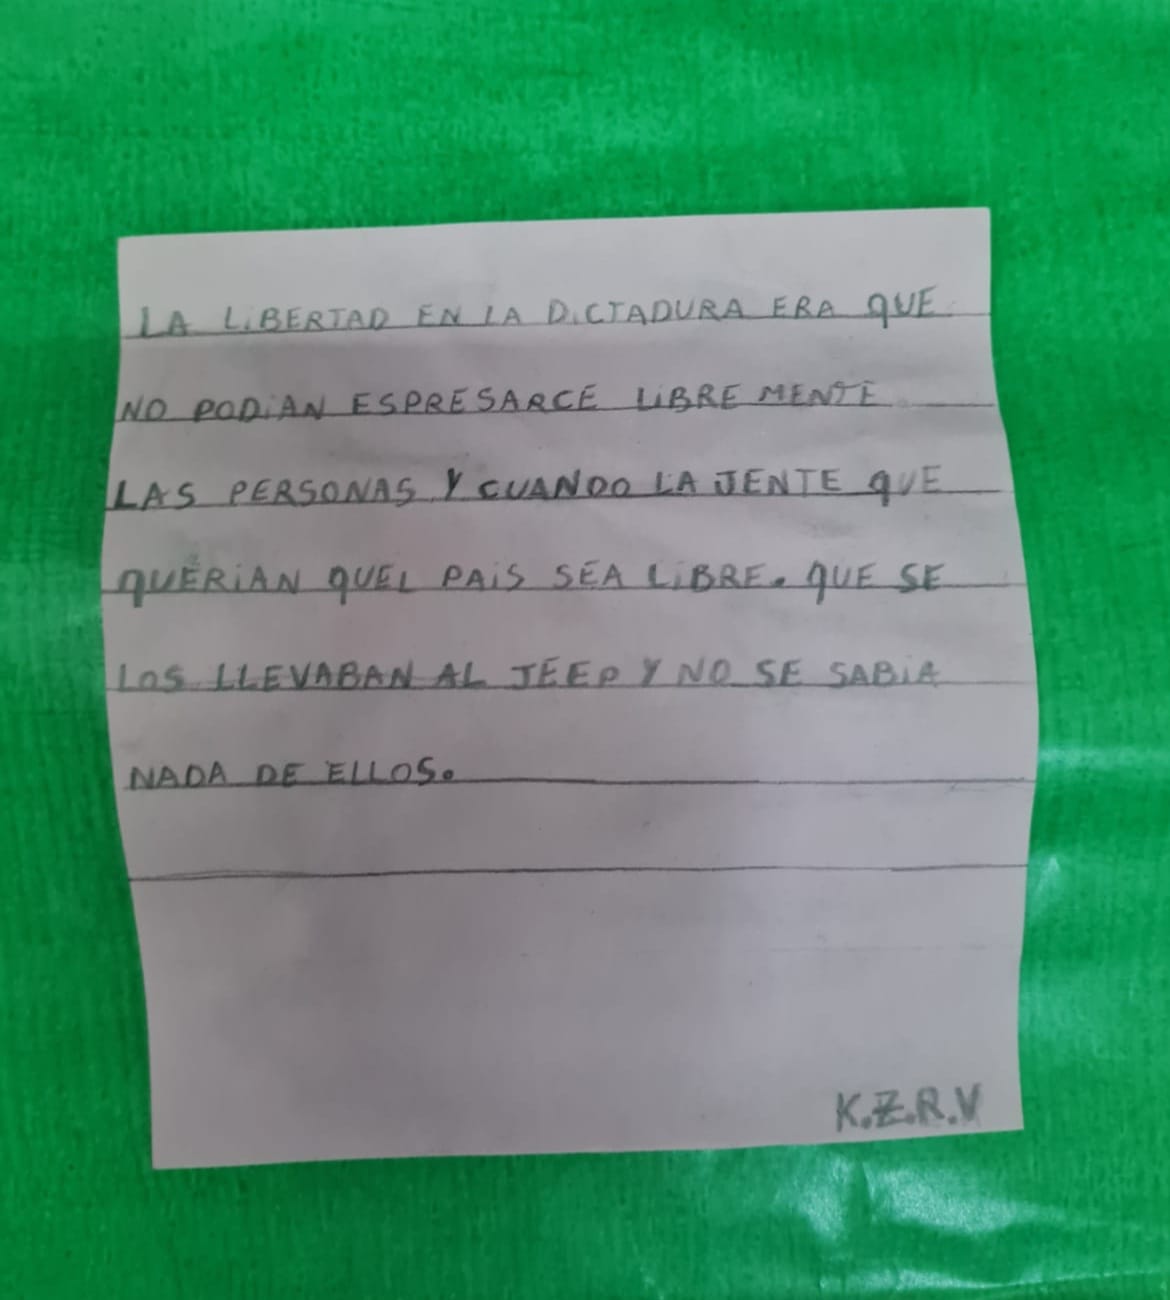 LA LiBERTAD EN LA DiCTADURA ERA QUE
NO PODiAN ESPRESARCE LiBRE MENTE
LAS PERSONAS Y CUANDO LA JENTE QUE
QUERiAN QUEL PAiS SEA LiBRE. QUE SE
LOS LLEVABAN AL JEEP Y NO SE SABiA
NADA DE ELLOS.
K.Z.R.V